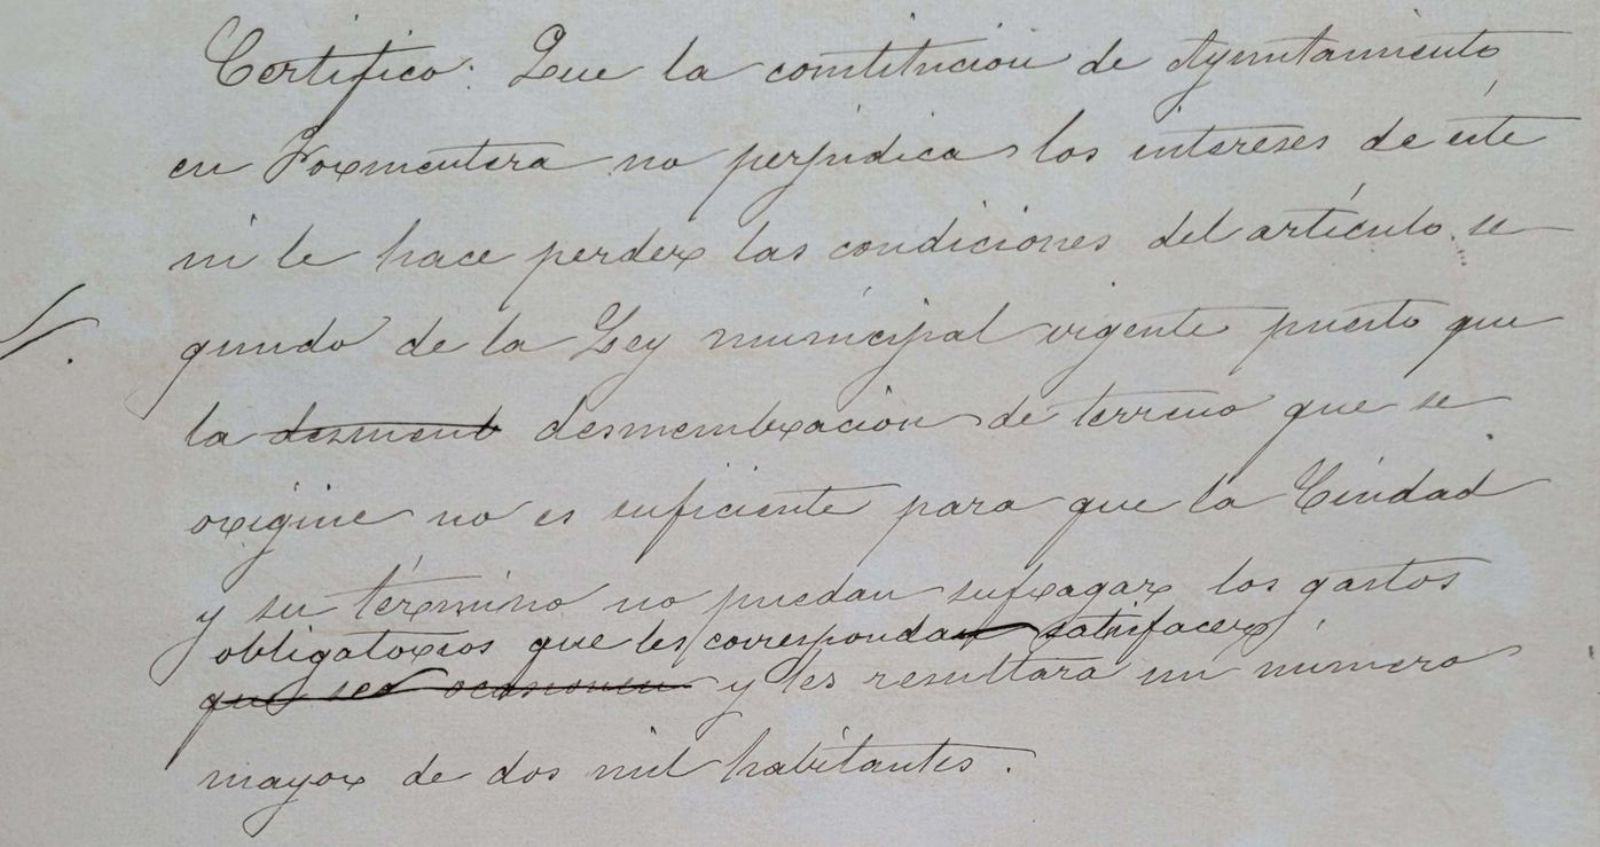 Certifico: Que la constitución de Ayuntamiento
en Formentera no perjudica los intereses de éste
ni le hace perder las condiciones del artículo se
gundo de la Ley municipal vigente puesto que
la desmemb desmembración de terreno que se
origine no es suficiente para que la Ciudad
y su término no puedan sufragar los gastos
obligatorios que les correspondan satisfacer,
que se ocasionen y les resultara un número
mayor de dos mil habitantes.